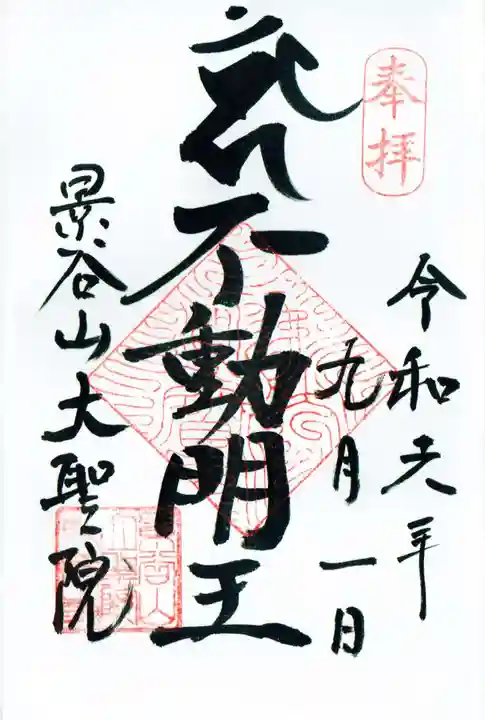 奉拝
令和元年
九月一日
不動明王
景谷山大聖院